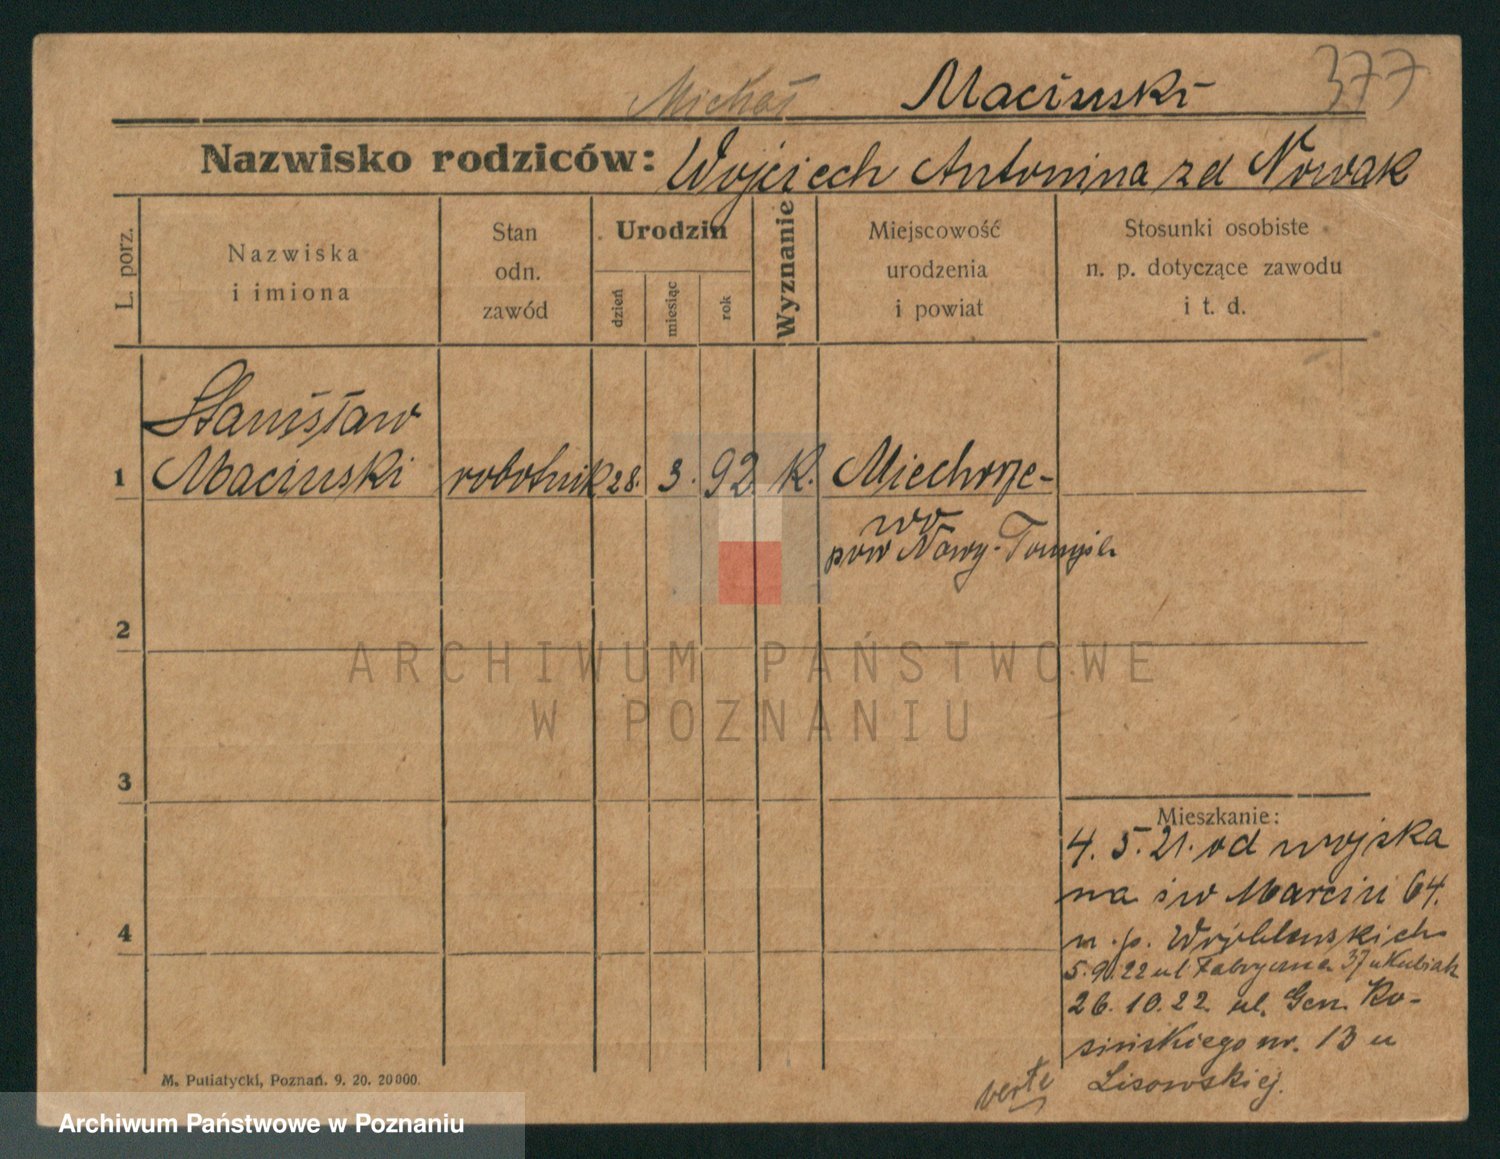 Michał Maciński 377
Nazwisko rodziców: Wojciech Antonina zd Nowak
L. porz.
Nazwiska
i imiona
Stan
odn.
zawód
Urodzin
dzień
miesiąc
rok
Wyznanie
Miejscowość
urodzenia
i powiat
Stosunki osobiste
n. p. dotyczące zawodu
i t. d.
Stanisław
1 Maciński robotnik 28. 3. 92 K. Miechorze-
wo
pow Nowy-Tomyśl
2
3
4
Mieszkanie:
4. 5. 21. od wojska
na św Marcin 64.
n. p.
5.9.22 ul Fabryczna 37 u Kubiak
26.10.22 ul. Gen. Ko-
sińskiego nr. 13 u
Lisowskiej.
verte
M. Putiatycki, Poznań. 9. 20. 20000.
ARCHIWUM PAŃSTWOWE
W POZNANIU
Archiwum Państwowe w Poznaniu